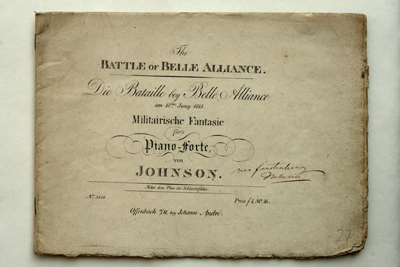 The
BATTLE OF BELLE ALLIANCE.
Die Bataille bey Belle Alliance
am 18ten Juny 1815.
Militairische Fantasie
fürs
Piano-Forte,
von
JOHNSON.
Nebst dem Plan des Schlachtfeldes.
Preis f 1,30 Xr.
Offenbach a/M, bey Johann André.